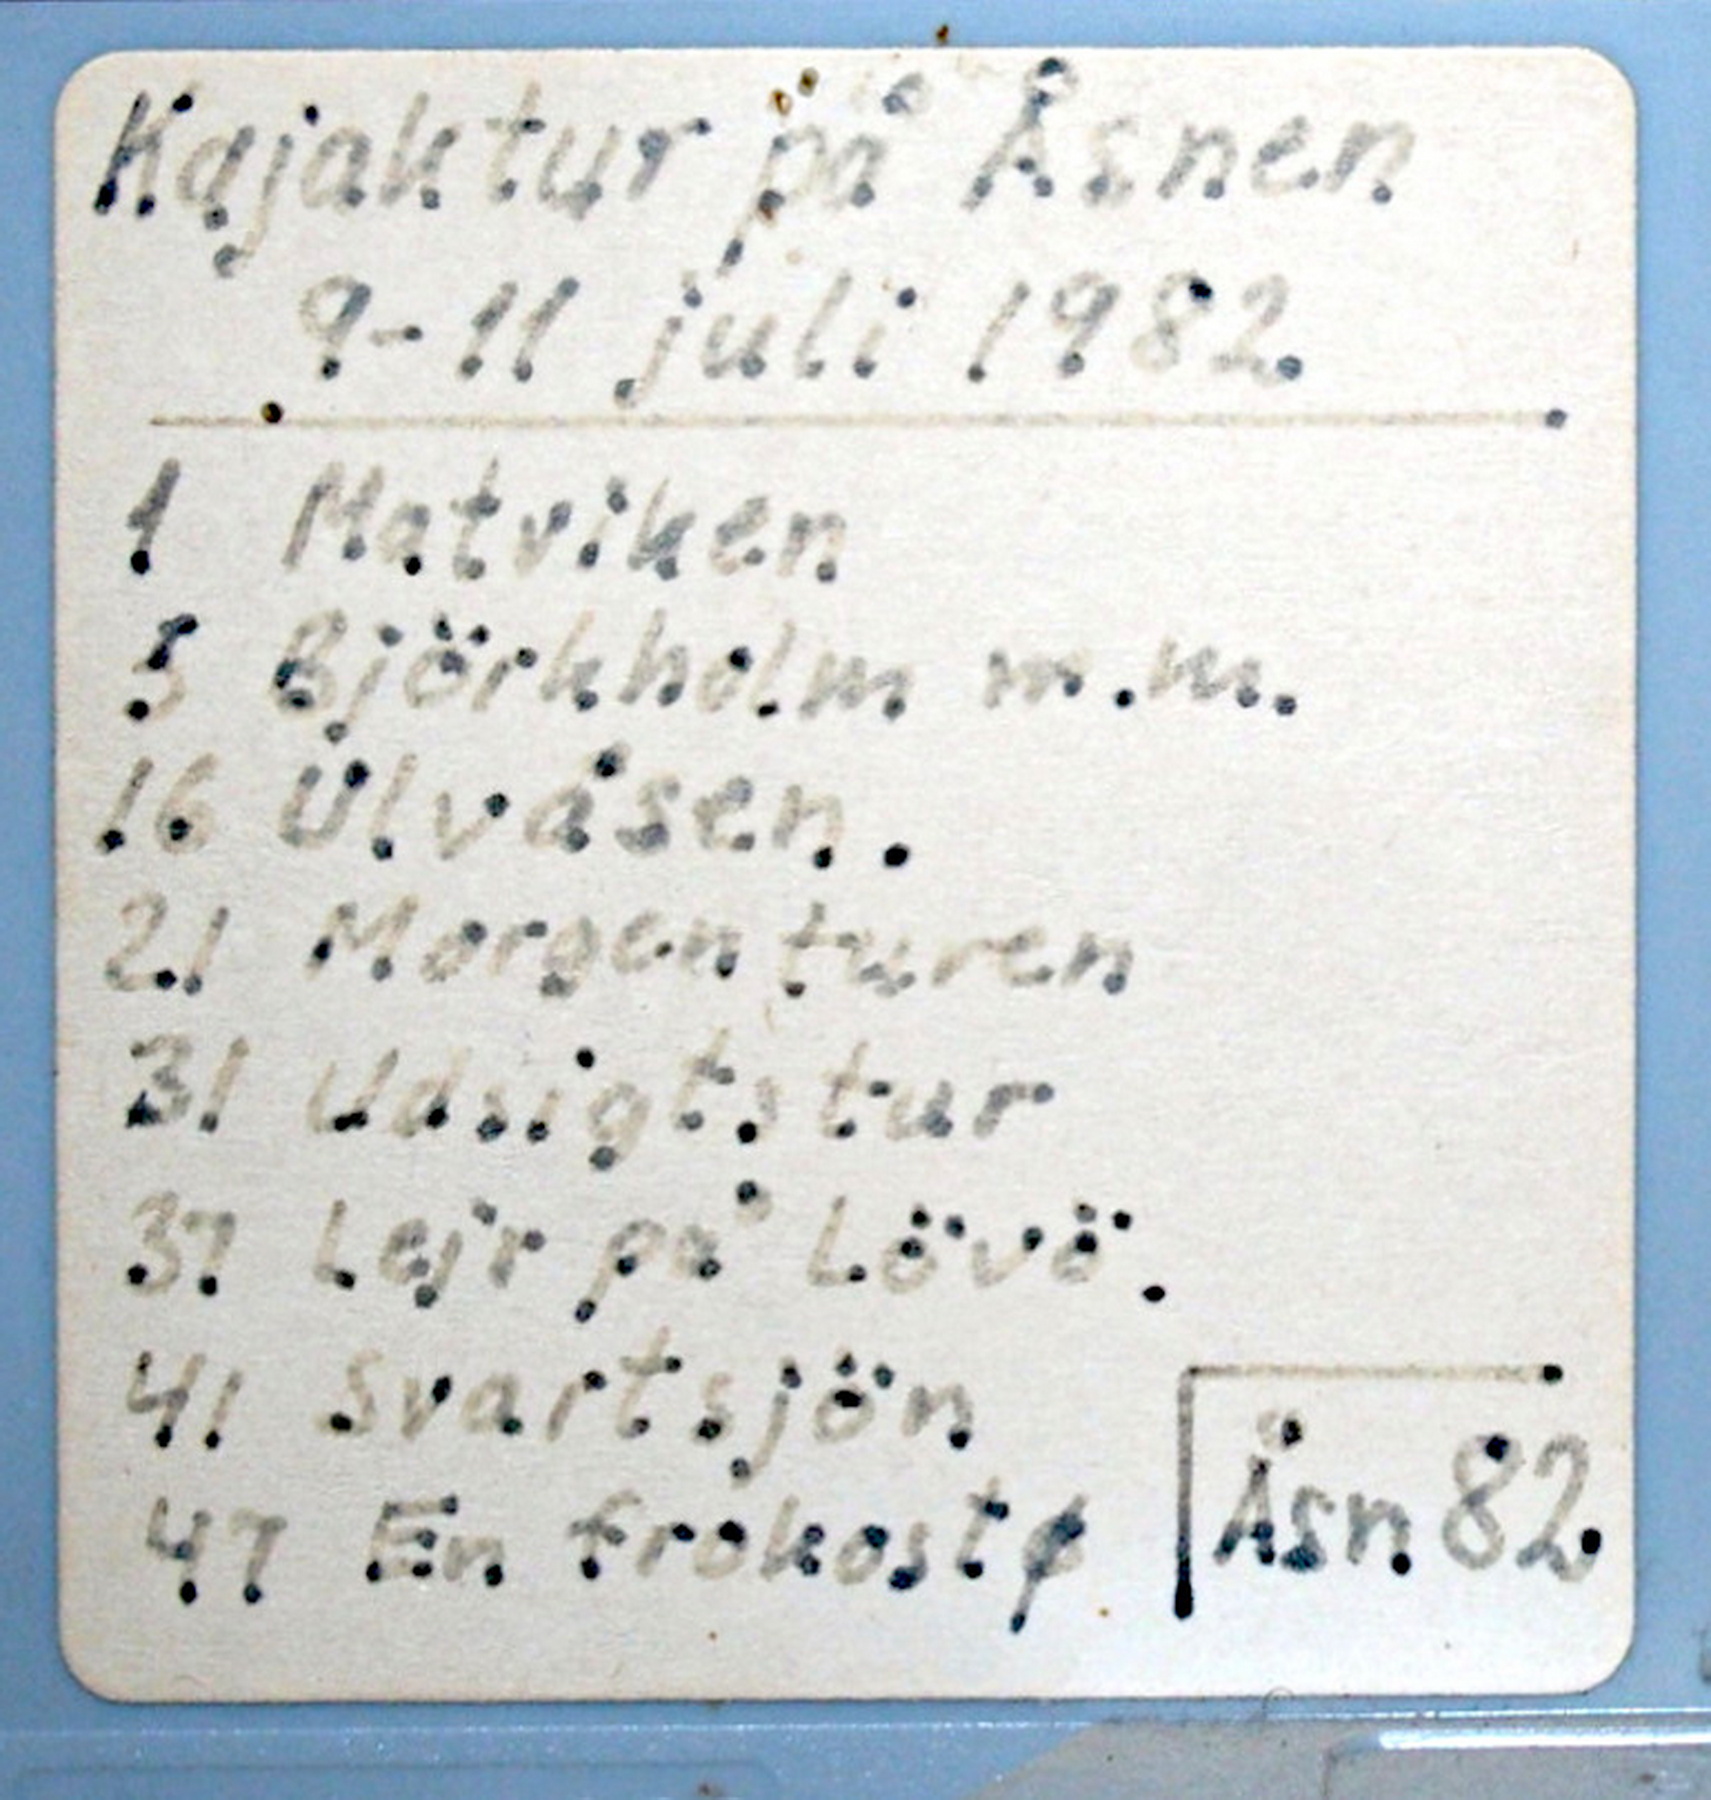 Kajaktur på Åsnen
9-11 juli 1982
1 Matviken
5 Björkholm m.m.
16 Ulvåsen.
21 Morgenturen
31 Udsigtstur
37 Lejr på Lövö.
41 Svartsjön
47 En frokostø
Åsn 82